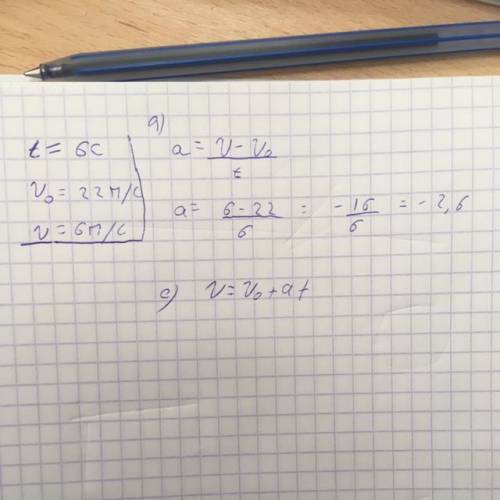 t = 6c
v₀ = 22м/с
v = 6м/с
a)
a = (v - v₀)/t
a = (6 - 22)/6 = -16/6 = -2,6
c) v = v₀ + at